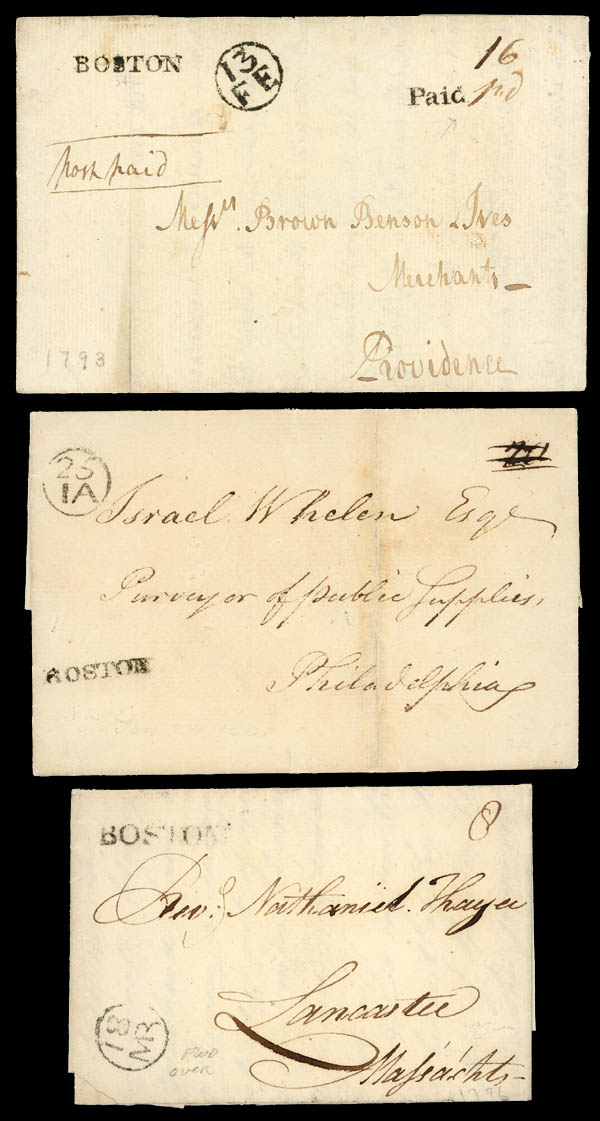 BOSTON
13 FE
16
Paid pd
post paid
Messrs. Brown Benson & Ives
Merchants
Providence
1793
25
IA
Israel Whelen Esqr
Purveyor of public Supplies,
Philadelphia
BOSTON
BOSTON
8
Revd. Nathaniel Thayer
Lancaster
Massachts
18
MR
PWD
OVER
1796